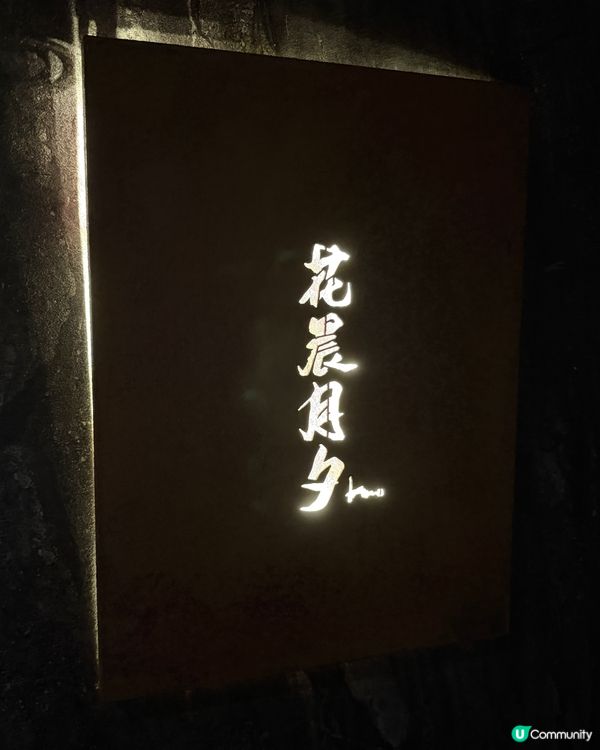 花晨月夕
U Community